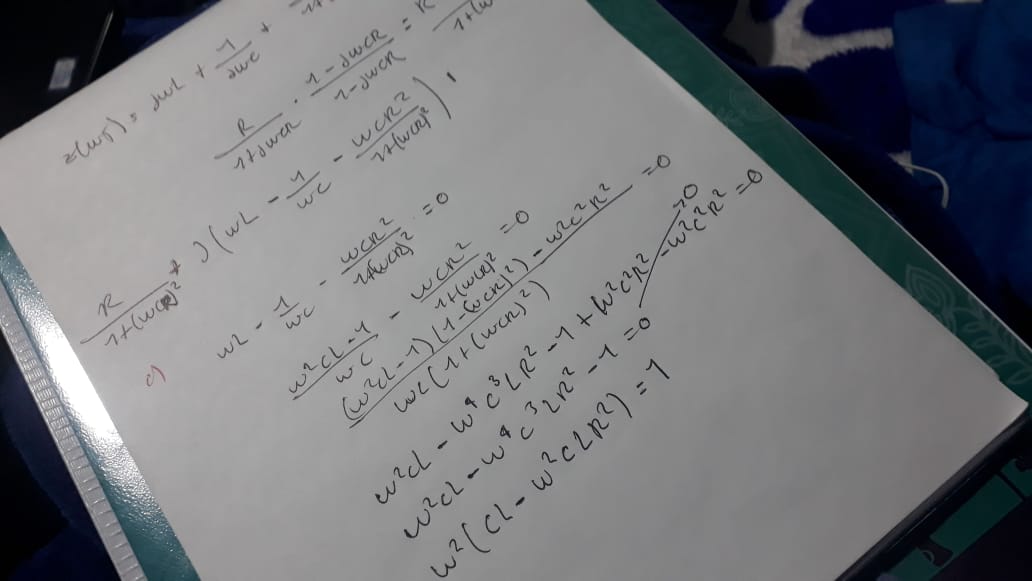 z(wj) = jwL + 1/jwc +
R/(1+jwcR) · (1-jwcR)/(1-jwcR) = R
R/(1+(wcR)²) + J(wL - 1/wc - wcR²/(1+(wcR)²)),
c) wL - 1/wc - wcR²/(1+(wcR)²) = 0
(w²cL-1)/wc - wcR²/(1+(wcR)²) = 0
((w²cL-1)(1-(wcR)²) - w²c²R²)/(wc(1+(wcR)²)) = 0
w²cL - w⁴c³LR² - 1 + w²c²R² - w²c²R² = 0
w²cL - w⁴c³LR² - 1 = 0
w²(cL - w²cLR²) = 1